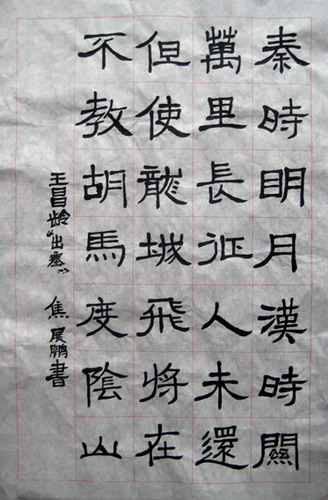 秦時明月漢時關
萬里長征人未還
但使龍城飛將在
不教胡馬度陰山
王昌龄“出塞” 焦展鹏書